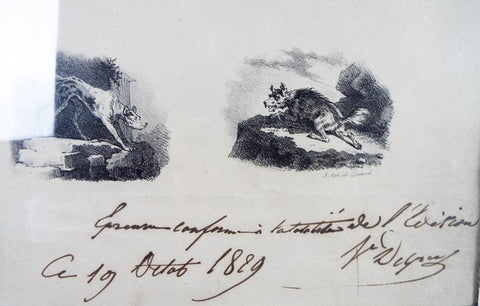 Epreuve conforme à la totalité de l'Edition
Ce 19 Octob 1829